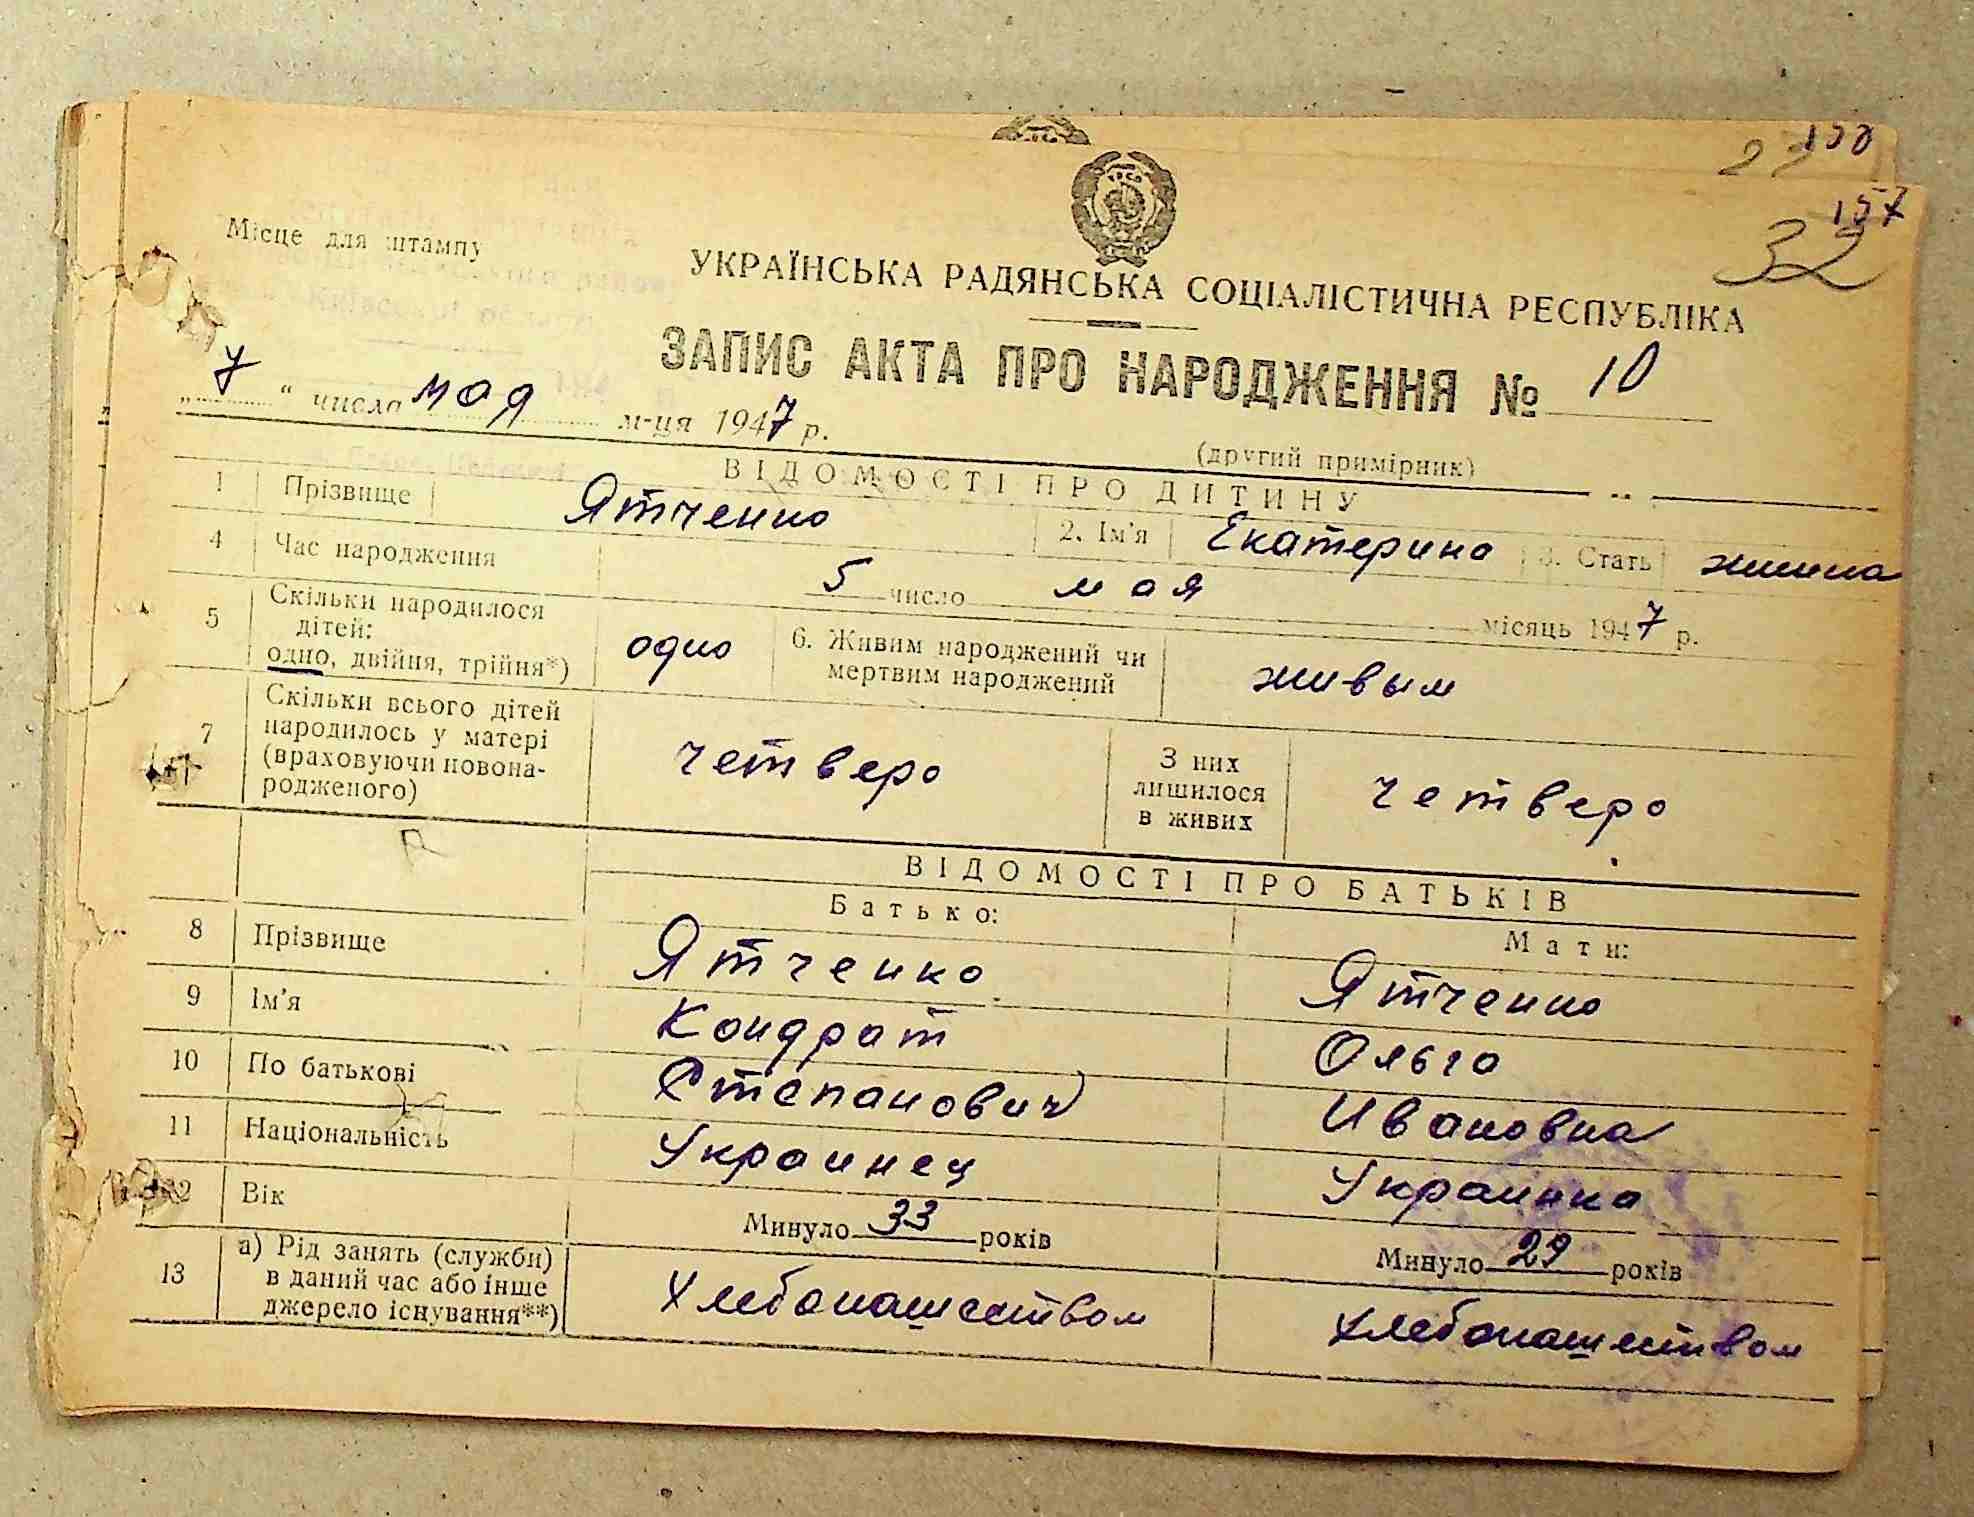 158
22
157
32
Місце для штампу
УКРАЇНСЬКА РАДЯНСЬКА СОЦІАЛІСТИЧНА РЕСПУБЛІКА
ЗАПИС АКТА ПРО НАРОДЖЕННЯ № 10
„7“ числа мая м-ця 1947 р.
(другий примірник)
ВІДОМОСТІ ПРО ДИТИНУ
1 Прізвище Ятченко 2. Ім'я Екатерина 3. Стать
4 Час народження 5 число мая місяць 1947 р.
5 Скільки народилося
дітей:
одно, двійня, трійня*)
одно
6. Живим народжений чи
мертвим народжений
живым
7 Скільки всього дітей
народилось у матері
(враховуючи новона-
родженого)
четверо
З них
лишилося
в живих
четверо
ВІДОМОСТІ ПРО БАТЬКІВ
Батько: Мати:
8 Прізвище Ятченко Ятченко
9 Ім'я Кондрат Ольга
10 По батькові Степанович Ивановна
11 Національність Украинец Украинка
12 Вік Минуло 33 років Минуло 29 років
13 а) Рід занять (служби)
в даний час або інше
джерело існування**)
Хлебопашеством хлебопашеством